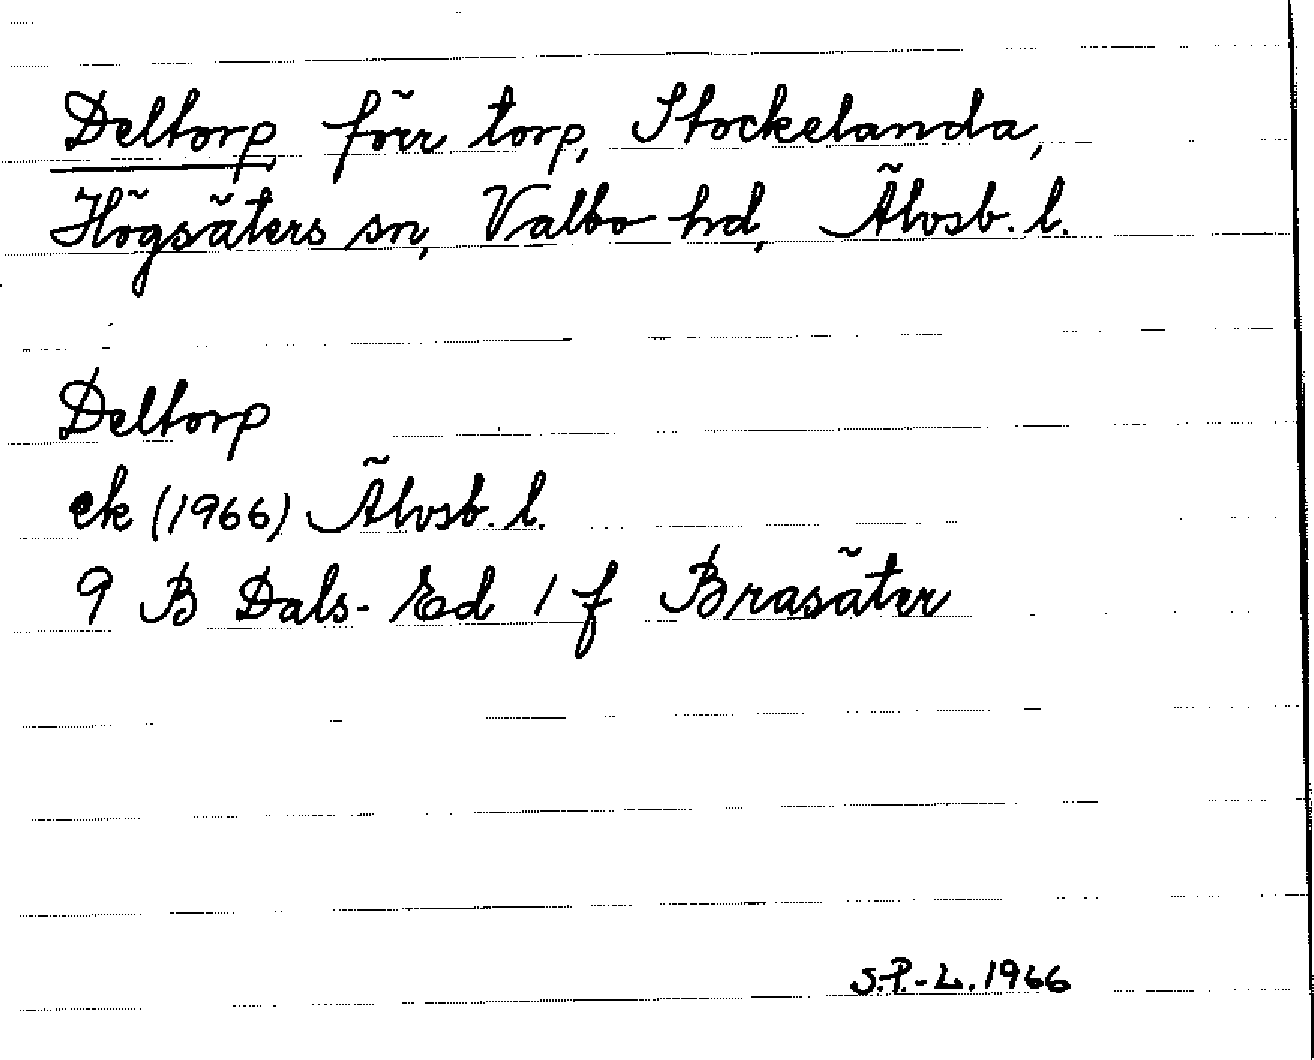 Deltorp förr torp, Stockelanda,
Högsäters sn, Valbo hd, Älvsb. l.
Deltorp
ek (1966) Älvsb. l.
9 B Dals-Ed 1 f Brasäter
S.P.-L. 1966